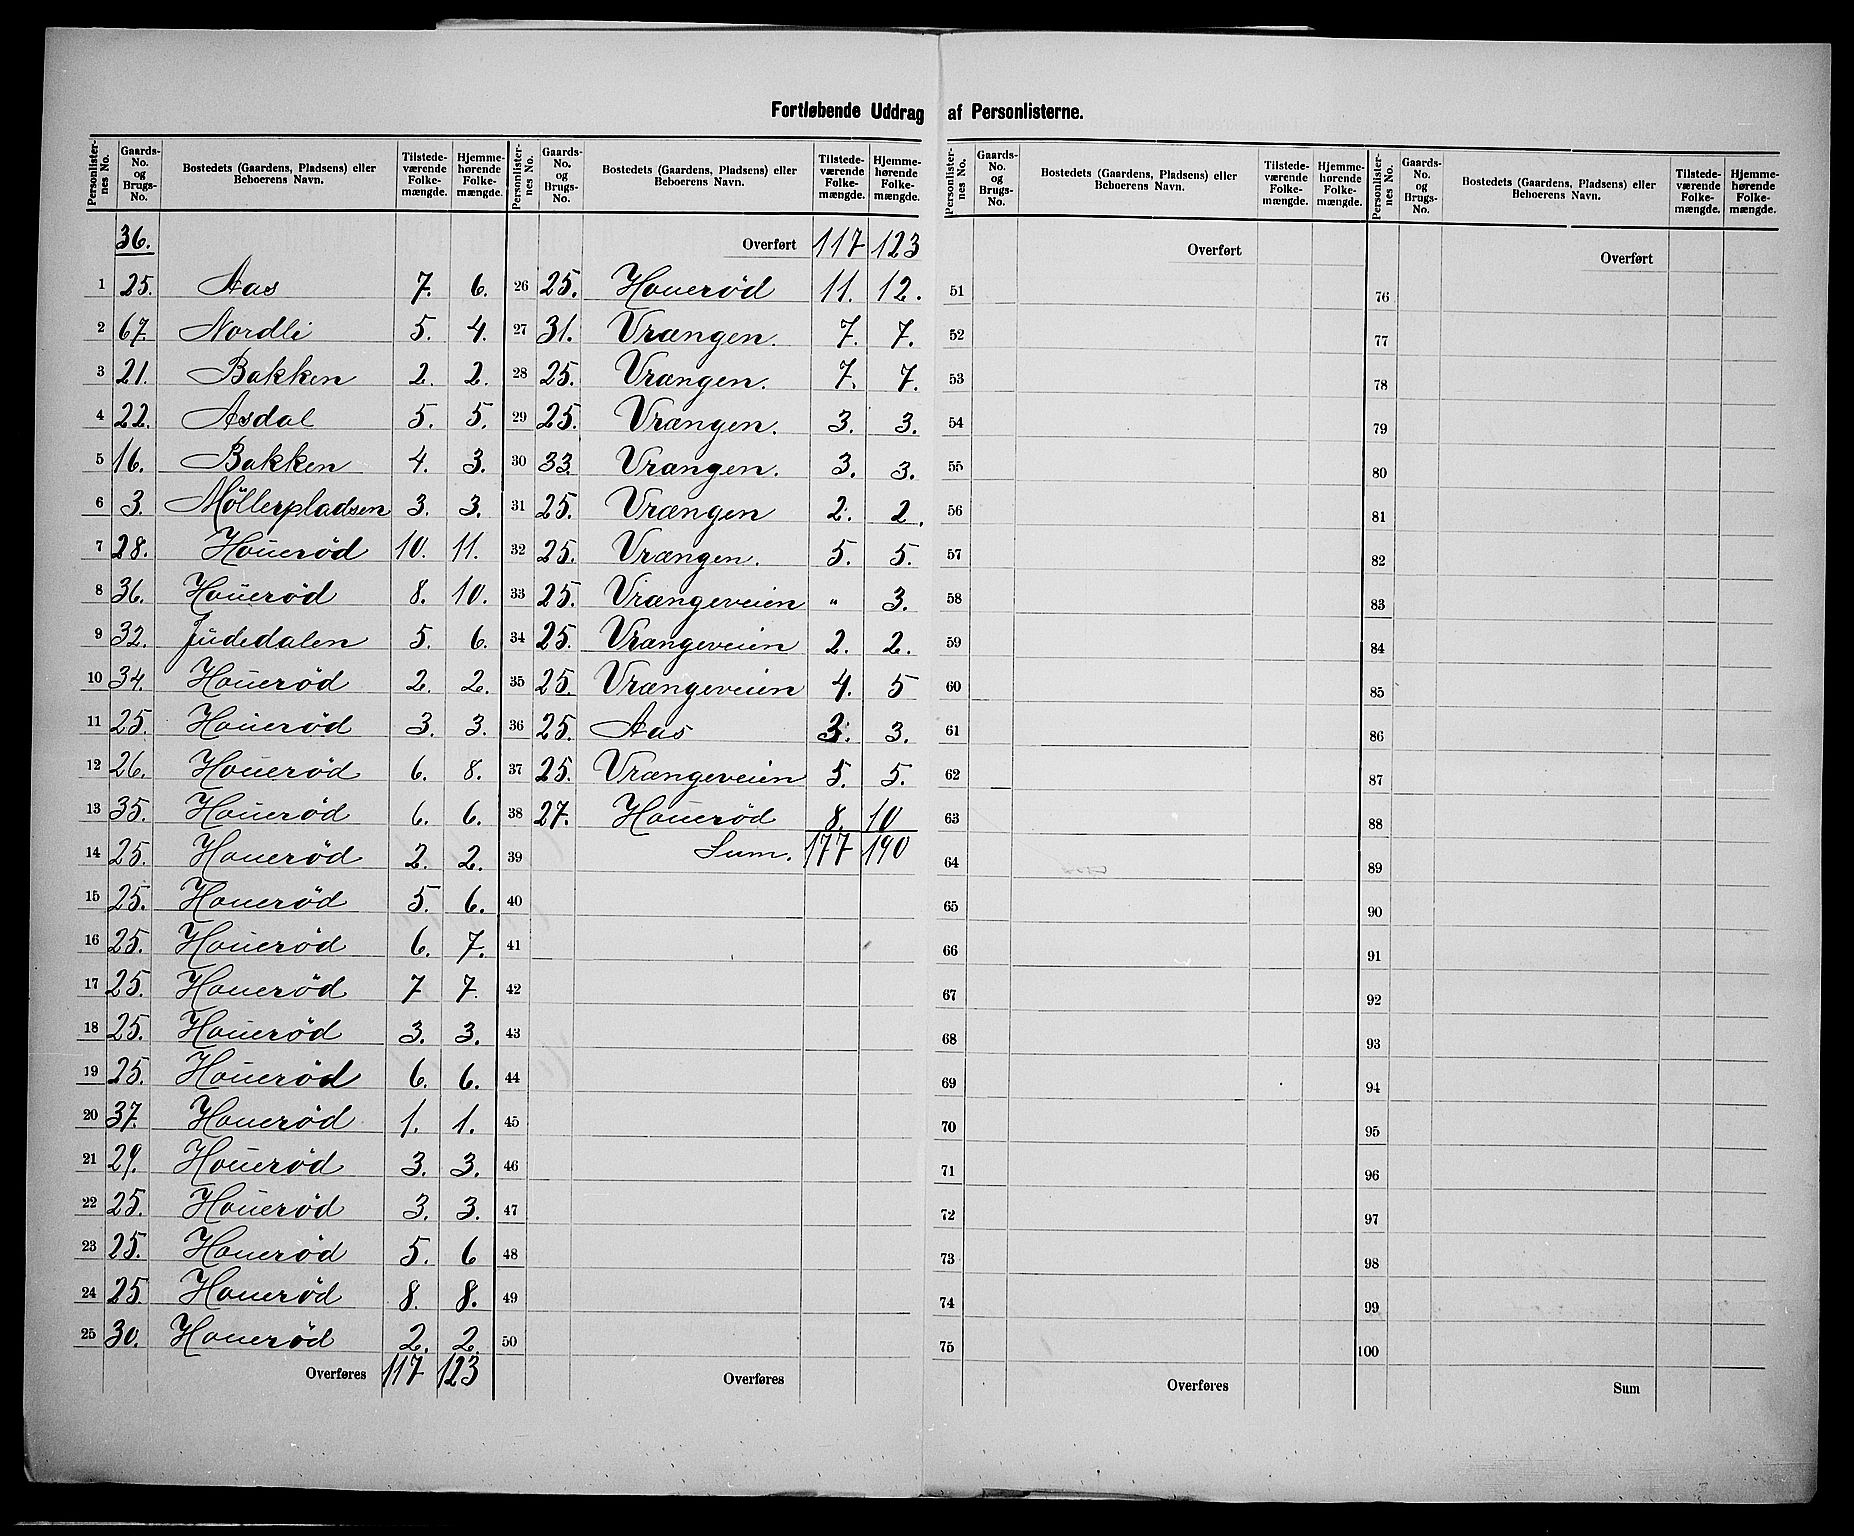 Fortløbende Uddrag af Personlisterne.
Personlisternes No. | Gaards-No. og Brugs-No. | Bostedets (Gaardens, Pladsens) eller Beboerens Navn. | Tilstedeværende Folkemængde. | Hjemmehørende Folkemængde.
36.
1 25. Aas 7. 6.
2 67. Nordli 5. 4.
3 21. Bakken 2. 2.
4 22. Asdal 5. 5.
5 16. Bakken 4. 3.
6 3. Möllerpladsen 3. 3.
7 28. Houerød 10. 11.
8 36. Houerød 8. 10.
9 32. Judedalen 5. 6.
10 34. Houerød 2. 2.
11 25. Houerød 3. 3.
12 26. Houerød 6. 8.
13 35. Houerød 6. 6.
14 25. Houerød 2. 2.
15 25. Houerød 5. 6.
16 25. Houerød 6. 7.
17 25. Houerød 7 7.
18 25. Houerød 3. 3.
19 25. Houerød 6. 6.
20 37. Houerød 1. 1.
21 29. Houerød 3. 3.
22 25. Houerød 3. 3.
23 25. Houerød 5. 6
24 25. Houerød 8. 8.
25 30. Houerød 2. 2.
Overføres 117 123
Personlisternes No. | Gaards-No. og Brugs-No. | Bostedets (Gaardens, Pladsens) eller Beboerens Navn. | Tilstedeværende Folkemængde. | Hjemmehørende Folkemængde.
Overført 117 123
26 25. Houerød 11. 12.
27 31. Vrængen. 7. 7.
28 25. Vrængen. 7. 7.
29 25. Vrængen. 3. 3.
30 33. Vrængen. 3. 3.
31 25. Vrængen 2. 2.
32 25. Vrængen. 5. 5.
33 25. Vrængeveien " 3.
34 25. Vrængeveien 2. 2.
35 25. Vrængeveien 4. 5
36 25. Aas 3. 3.
37 25. Vrængeveien 5. 5.
38 27. Houerød 8. 10
39 Sum. 177 190
40
41
42
43
44
45
46
47
48
49
50
Overføres
Personlisternes No. | Gaards-No. og Brugs-No. | Bostedets (Gaardens, Pladsens) eller Beboerens Navn. | Tilstedeværende Folkemængde. | Hjemmehørende Folkemængde.
Overført
51
52
53
54
55
56
57
58
59
60
61
62
63
64
65
66
67
68
69
70
71
72
73
74
75
Overføres
Personlisternes No. | Gaards-No. og Brugs-No. | Bostedets (Gaardens, Pladsens) eller Beboerens Navn. | Tilstedeværende Folkemængde. | Hjemmehørende Folkemængde.
Overført
76
77
78
79
80
81
82
83
84
85
86
87
88
89
90
91
92
93
94
95
96
97
98
99
100
Sum